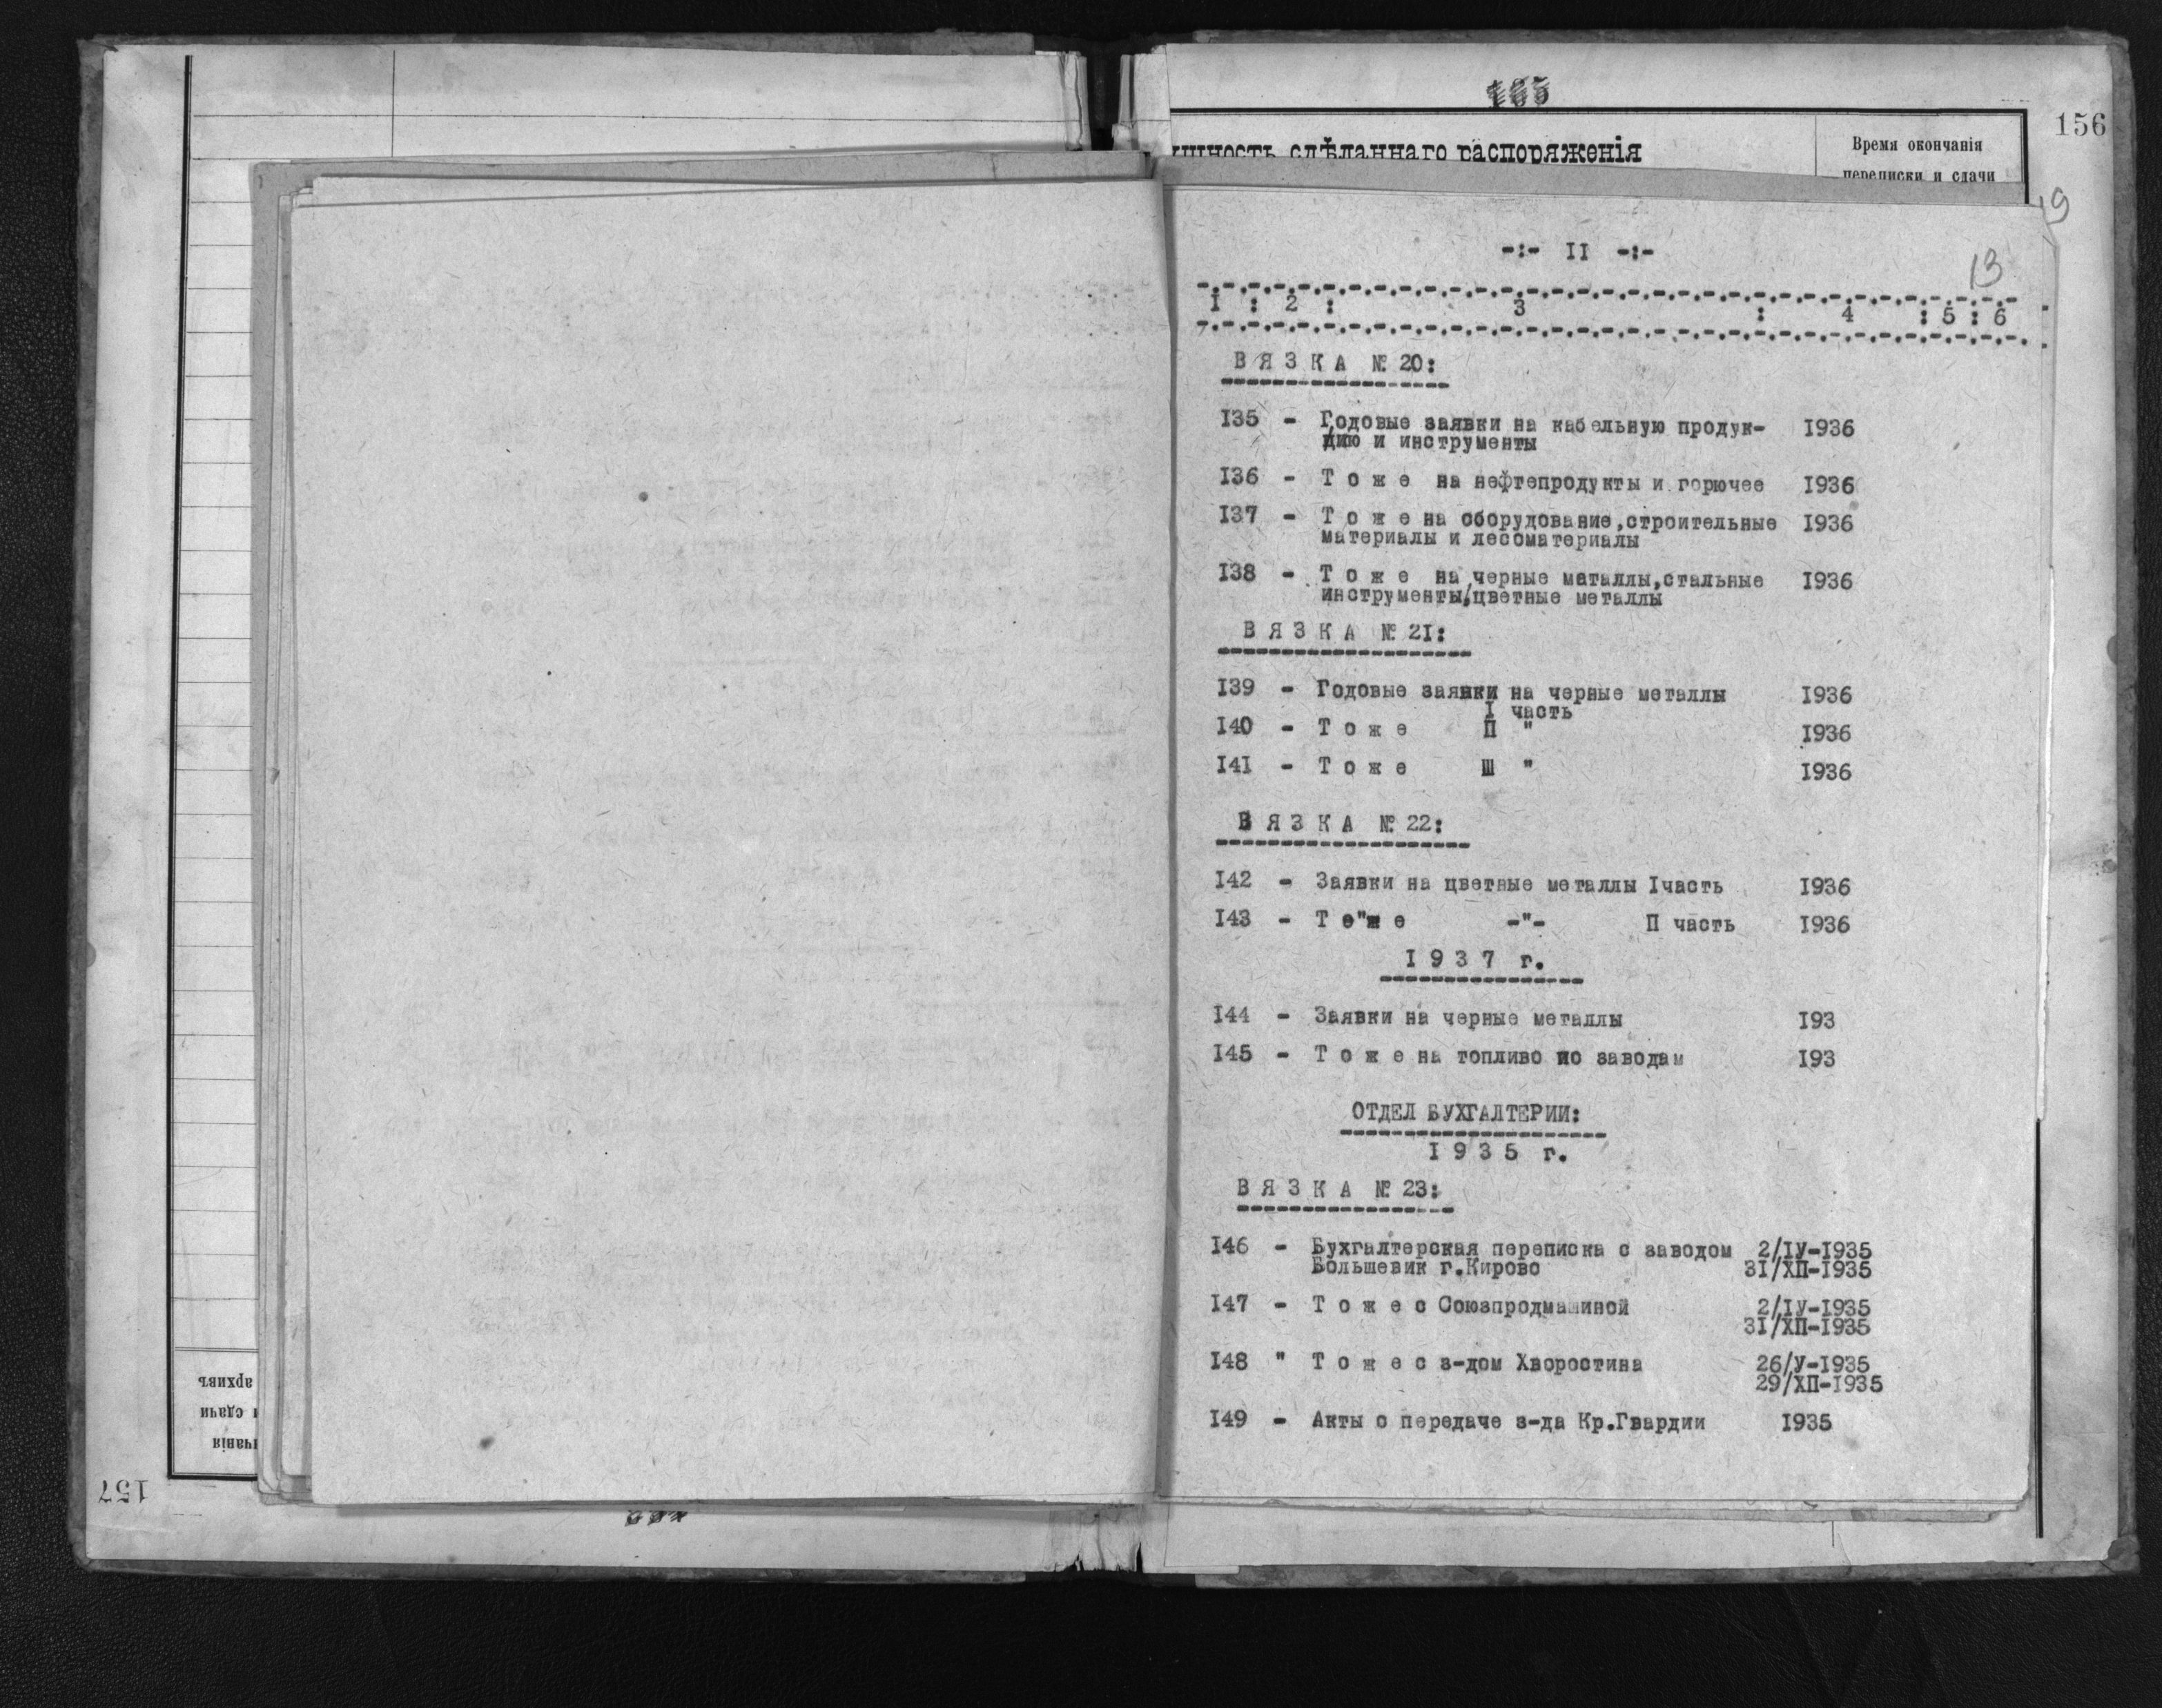 156
ущность сдѣланнаго распоряженія
Время окончанія
переписки и сдачи
19
13
-:- II -:-
I : 2 : 3 : 4 : 5 : 6
В Я З К А № 20:
I35 - Годовые заявки на кабельную продук- I936
цию и инструменты
I36 - Т о ж е на нефтепродукты и горючее I936
I37 - Т о ж е на оборудование,строительные I936
материалы и лесоматериалы
I38 - Т о ж е на черные металлы,стальные I936
инструменты,цветные металлы
В Я З К А № 2I:
I39 - Годовые заявки на черные металлы I936
I часть
I40 - Т о ж е П " I936
I4I - Т о ж е Ш " I936
В Я З К А № 22:
I42 - Заявки на цветные металлы Iчасть I936
I43 - Т о"ж е -"- П часть I936
I 9 3 7 г.
I44 - Заявки на черные металлы I93
I45 - Т о ж е на топливо по заводам I93
ОТДЕЛ БУХГАЛТЕРИИ:
I 9 3 5 г.
В Я З К А № 23:
I46 - Бухгалтерская переписка с заводом 2/IУ-I935
Большевик г.Кирово 3I/ХП-I935
I47 - Т о ж е с Союзпродмашиной 2/IУ-I935
3I/ХП-I935
I48 " Т о ж е с з-дом Хворостина 26/У-I935
29/ХП-I935
I49 - Акты о передаче з-да Кр.Гвардии I935
архивъ
и сдачи
чанія
157